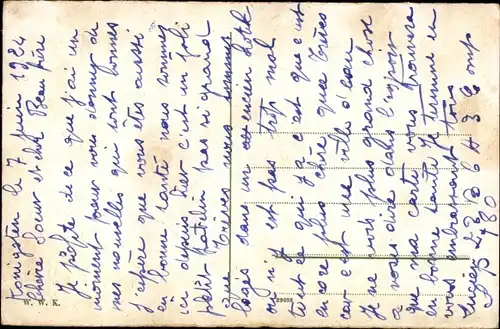 Königstein le 7 juin 1924
chère Sœur et cher Beau frère
Je profite de ce que j'ai un
moment pour vous donner de
mes nouvelles qui sont bonnes
j'espère que vous êtes aussi
en bonne santé nous sommes
ici depuis hier c'est un joli
petit patelin pas si grand
que Trèves nous sommes
logés dans un ancien hotel
où n'y est pas trop mal
tout ce qui y a c'est que c'est
encore plus cher que Trèves
car c'est une ville d'eau
Je ne vois plus grand chose
a vous dire dans l'espoir
que ma carte vous trouvera
en bonne santé Je termine en
vous embrassant tous
W. W. K.